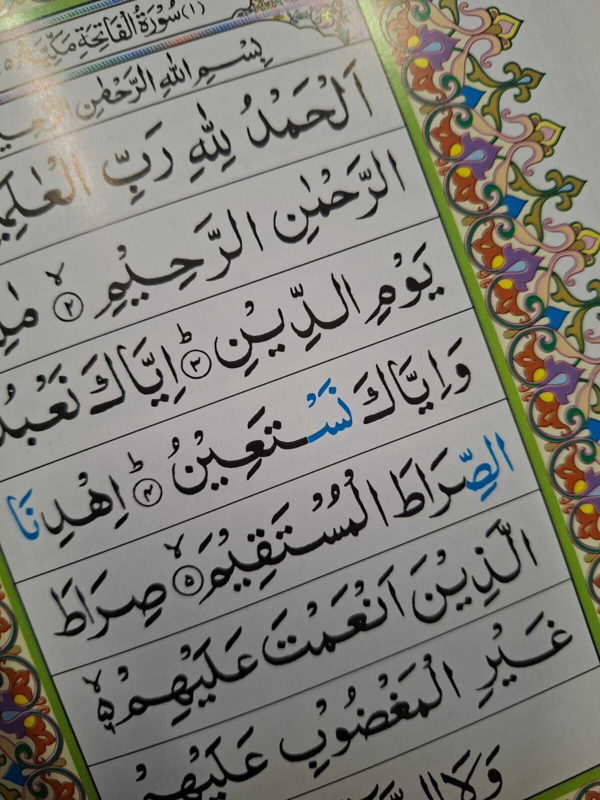 (١) سُوْرَةُ الْفَاتِحَةِ مَكِّيَّةٌ
بِسْمِ اللهِ الرَّحْمٰنِ الرَّحِيْمِ
اَلْحَمْدُ لِلّٰهِ رَبِّ الْعٰلَمِيْنَ
الرَّحْمٰنِ الرَّحِيْمِ ۙ﴿۲﴾ مٰلِكِ
يَوْمِ الدِّيْنِ ؕ﴿۳﴾ اِيَّاكَ نَعْبُدُ
وَاِيَّاكَ نَسْتَعِيْنُ ؕ﴿۴﴾ اِهْدِنَا
الصِّرَاطَ الْمُسْتَقِيْمَ ۙ﴿۵﴾ صِرَاطَ
الَّذِيْنَ اَنْعَمْتَ عَلَيْهِمْ ۙ۵
غَيْرِ الْمَغْضُوْبِ عَلَيْهِمْ
وَلَا